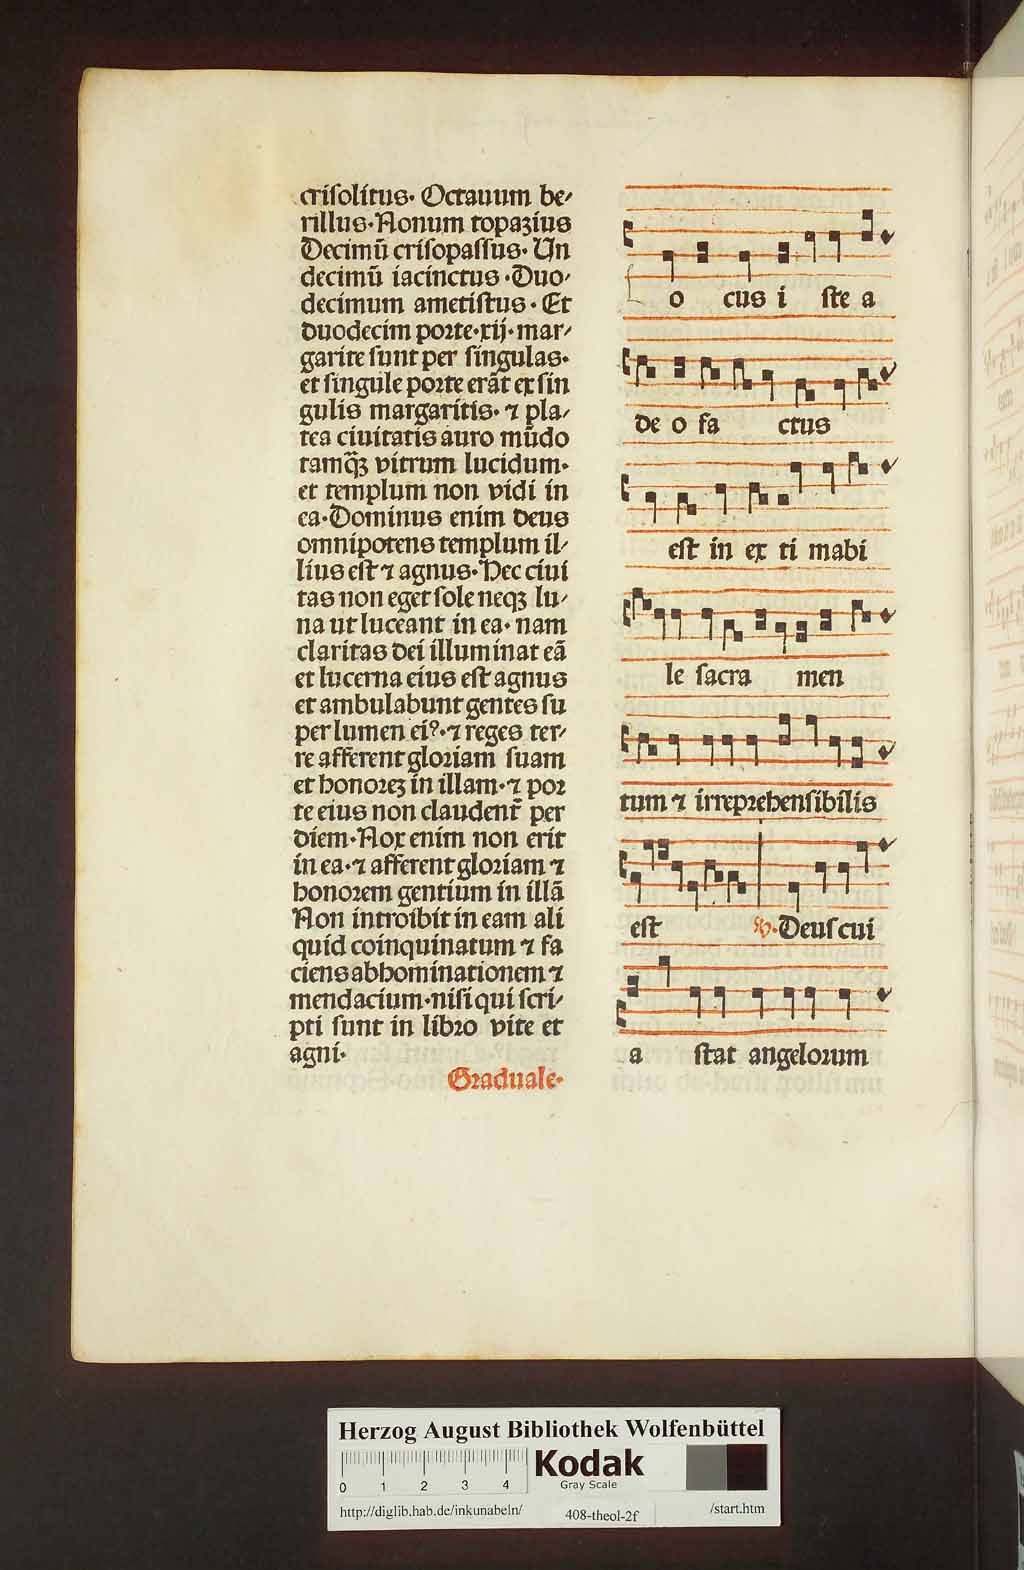 crisolitus. Octauum be-
rillus. Nonum topazius
Decimū crisopassus. Un
decimū iacinctus. Duo-
decimum ametistus. Et
duodecim porte. xij. mar-
garite sunt per singulas.
et singule porte erāt ex sin
gulis margaritis. ⁊ pla-
tea ciuitatis auro mūdo
tamq̄ꝫ vitrum lucidum.
et templum non vidi in
ea. Dominus enim deus
omnipotens templum il-
lius est ⁊ agnus. Hec ciui
tas non eget sole neqꝫ lu-
na ut luceant in ea. nam
claritas dei illuminat eā
et lucerna eius est agnus
et ambulabunt gentes su
per lumen eiꝰ. ⁊ reges ter-
re afferent gloriam suam
et honoreꝫ in illam. ⁊ por
te eius non claudent̄ per
diem. Nox enim non erit
in ea. ⁊ afferent gloriam ⁊
honorem gentium in illā
Non introibit in eam ali
quid coinquinatum ⁊ fa
ciens abhominationem ⁊
mendacium. nisi qui scri-
pti sunt in libro vite et
agni.
Graduale.
l o cus i ste a
de o fa ctus
est in ex ti mabi
le sacra men
tum ⁊ irreprehensibilis
est ℣. Deus cui
a stat angelorum
Herzog August Bibliothek Wolfenbüttel
0 1 2 3 4
Kodak
Gray Scale
http://diglib.hab.de/inkunabeln/ 408-theol-2f /start.htm